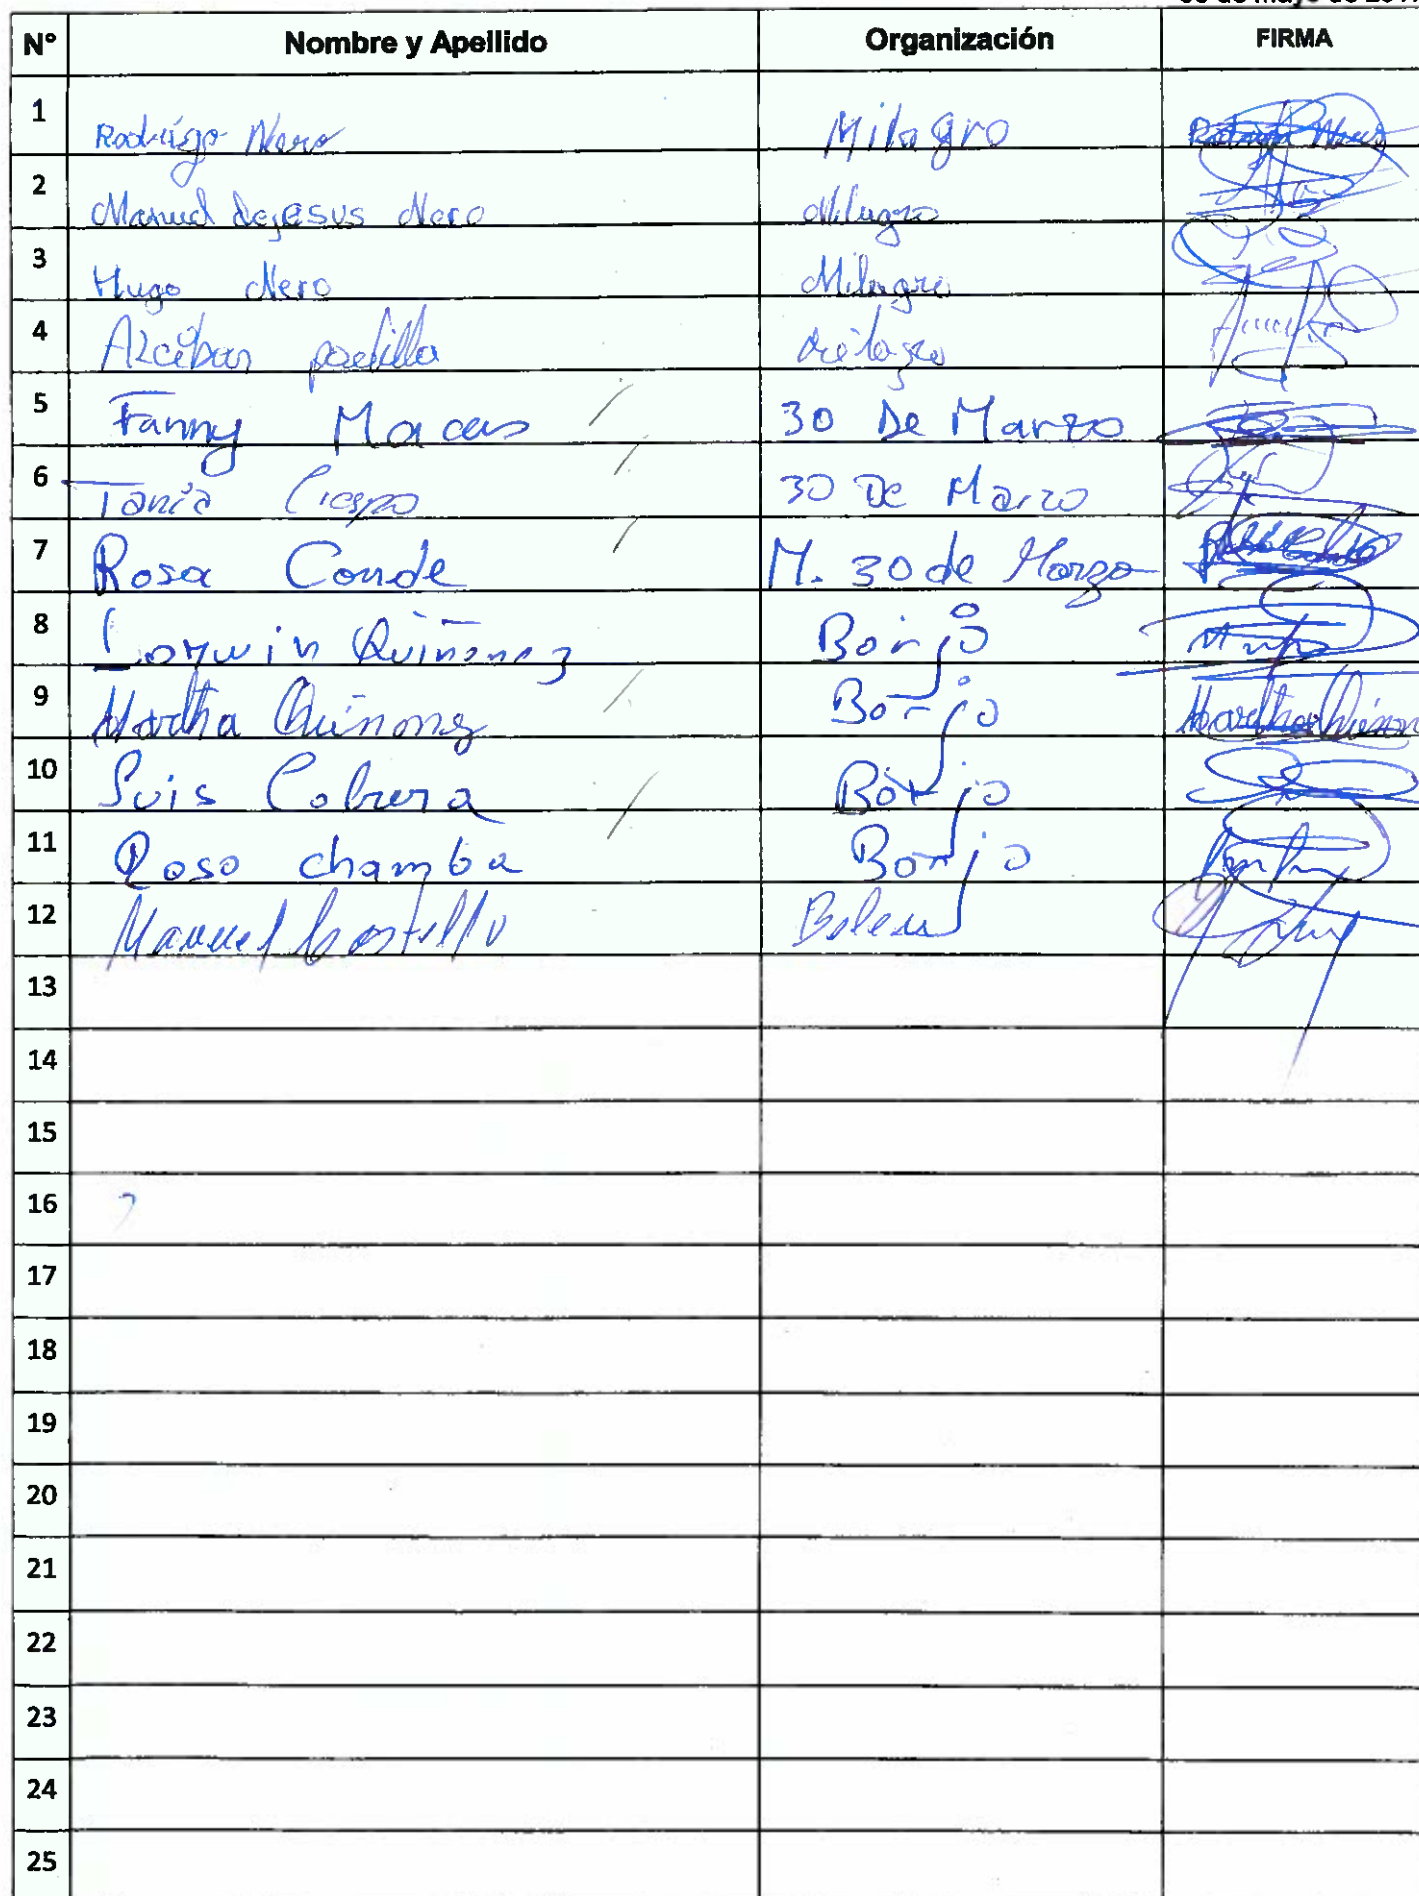 de mayo de
N° Nombre y Apellido Organización FIRMA
1 Rodrigo Nero Milagro
2 Manuel dejesus Nero Milagro
3 Hugo Nero Milagro
4 Alcibar padilla
5 Fanny Macas 30 De Marzo
6 Tania Crespo 30 De Marzo
7 Rosa Conde M. 30 de Marzo
8 Quinonez Borja
9 Martha Quinonez Borja Martha Quinon
10 Luis Cabrera Borja
11 Rosa chamba Borja
12 Manuel Castillo Belen
13
14
15
16
17
18
19
20
21
22
23
24
25